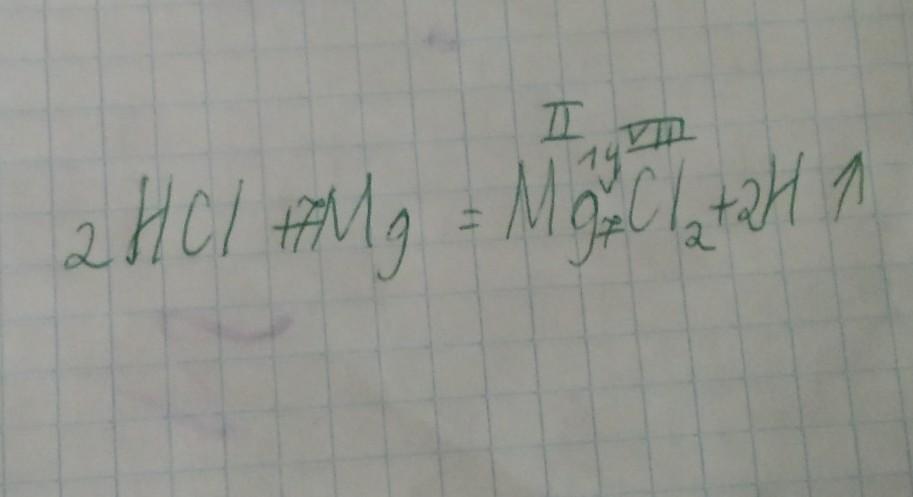 II 14 VIII
2HCl + 7Mg = Mg7Cl2 + 2H ↑